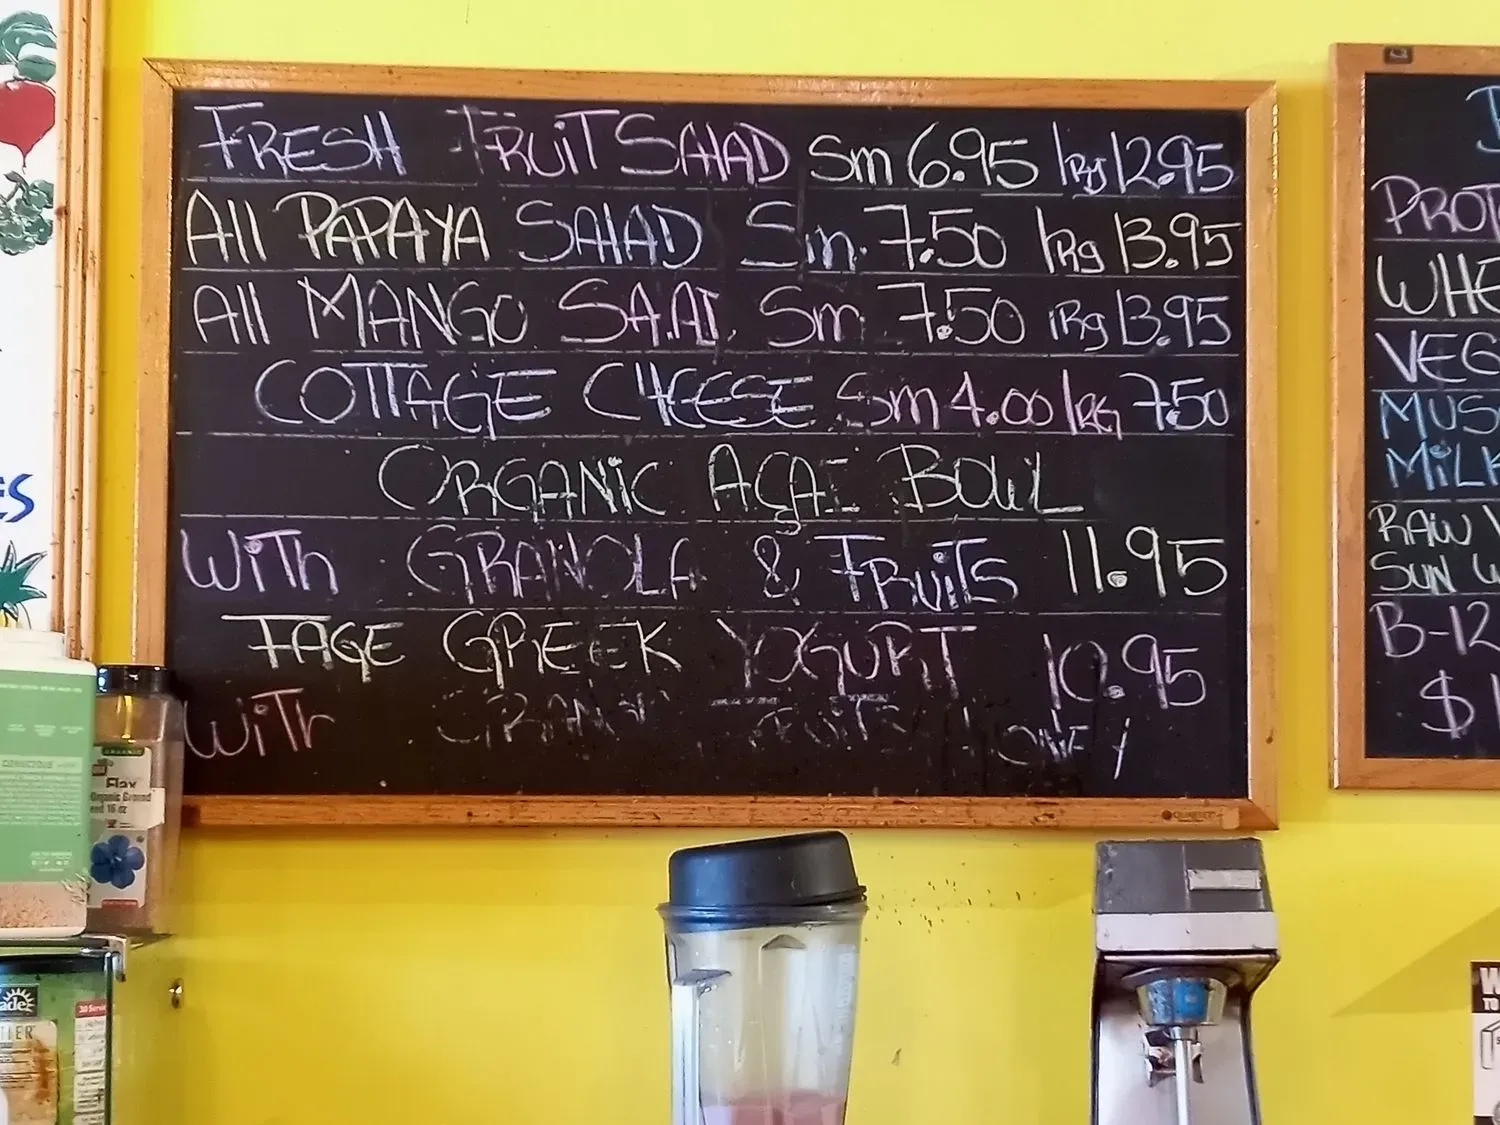 FRESH FRUIT SALAD Sm 6.95 lRg 12.95
All PAPAYA SALAD Sm. 7.50 lRg 13.95
All MANGO SA.Al. Sm 7.50 lRg 13.95
COTTAGE CHEESE Sm 4.00 lRG 7.50
ORGANIC AÇAI BOWL
WiTh GRANOLA & FRUiTS 11.95
FAGE GREEK YOGURT 10.95
WiTh FRUiTS
PROT
WHE
VEG
MUS
MiLK
RAW
SUN
B-12
$1
ES
ORGANIC
Flax
Organic Ground
16 oz
ade
TIER